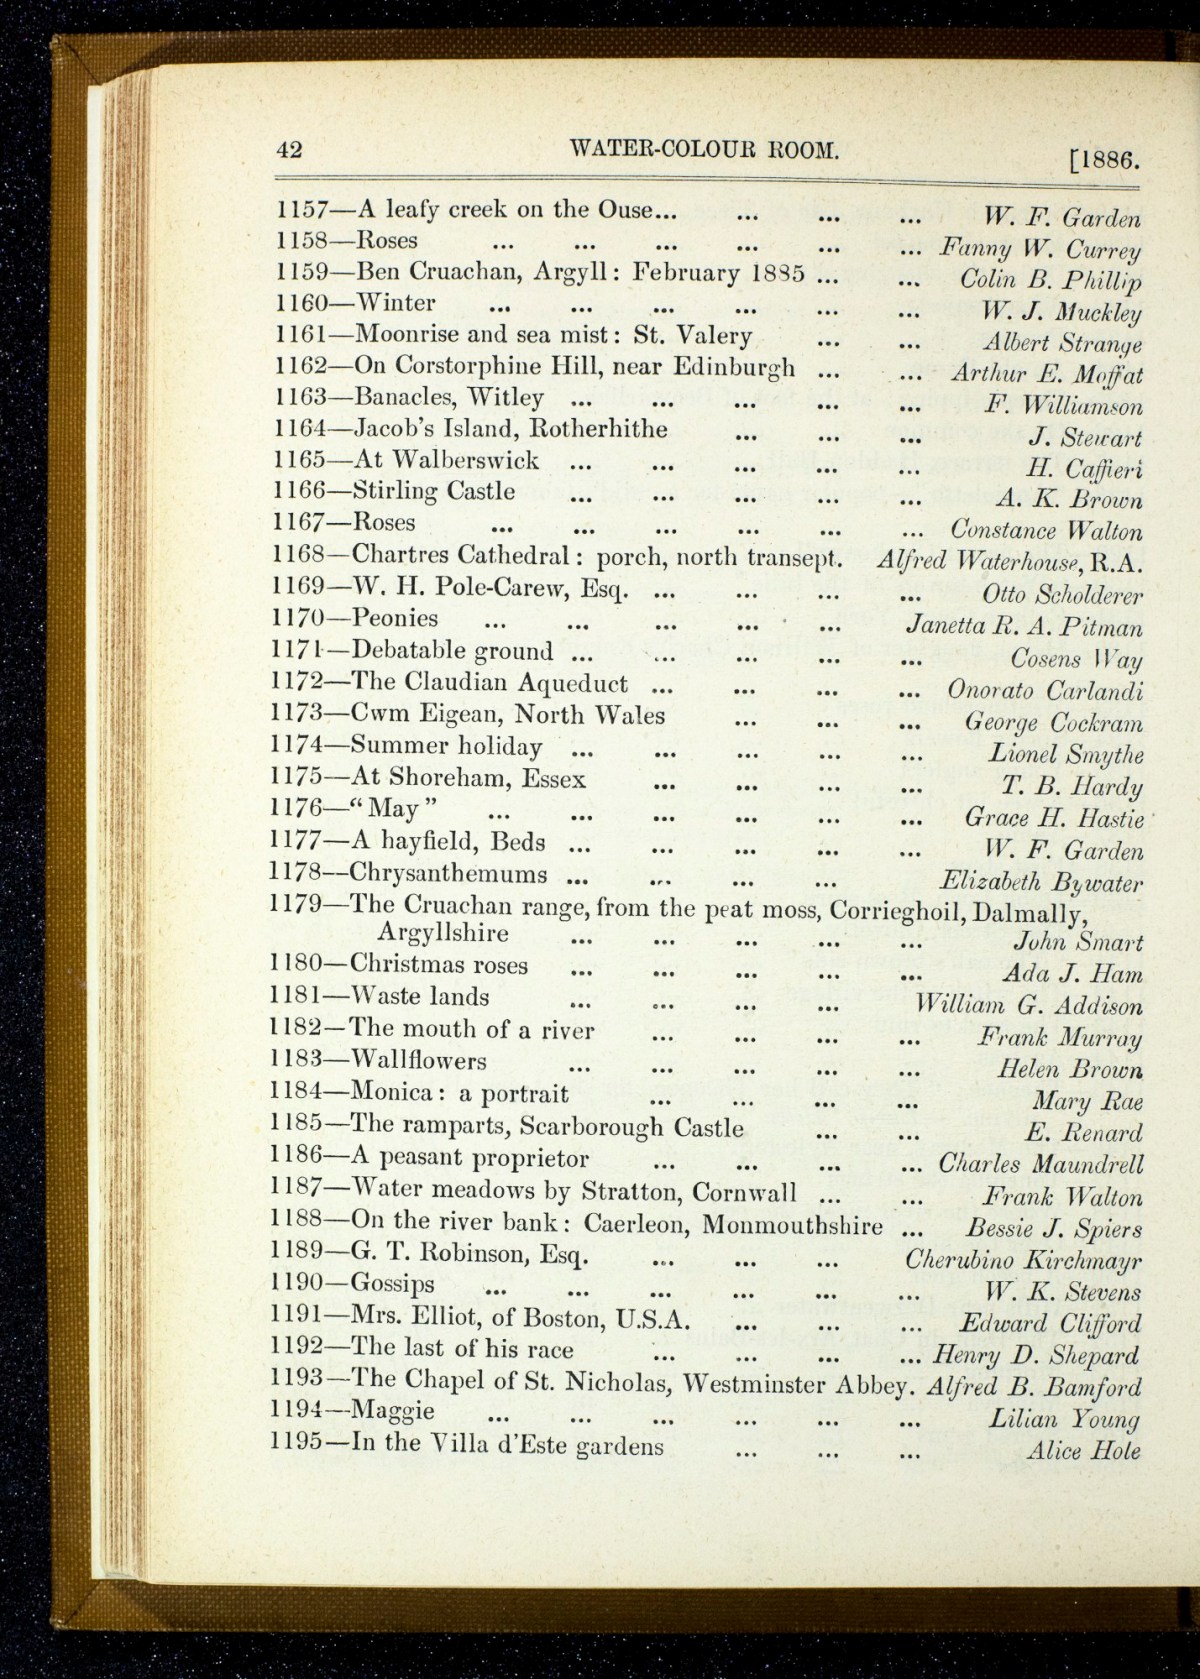 42 WATER-COLOUR ROOM. [1886.
1157—A leafy creek on the Ouse... ... ... ... W. F. Garden
1158—Roses ... ... ... ... ... ... Fanny W. Currey
1159—Ben Cruachan, Argyll: February 1885 ... ... Colin B. Phillip
1160—Winter ... ... ... ... ... ... W. J. Muckley
1161—Moonrise and sea mist: St. Valery ... ... Albert Strange
1162—On Corstorphine Hill, near Edinburgh ... ... Arthur E. Moffat
1163—Banacles, Witley ... ... ... ... ... F. Williamson
1164—Jacob's Island, Rotherhithe ... ... ... J. Stewart
1165—At Walberswick ... ... ... ... ... H. Caffieri
1166—Stirling Castle ... ... ... ... ... A. K. Brown
1167—Roses ... ... ... ... ... ... Constance Walton
1168—Chartres Cathedral: porch, north transept. Alfred Waterhouse, R.A.
1169—W. H. Pole-Carew, Esq. ... ... ... ... Otto Scholderer
1170—Peonies ... ... ... ... ... Janetta R. A. Pitman
1171—Debatable ground ... ... ... ... ... Cosens Way
1172—The Claudian Aqueduct ... ... ... ... Onorato Carlandi
1173—Cwm Eigean, North Wales ... ... ... George Cockram
1174—Summer holiday ... ... ... ... ... Lionel Smythe
1175—At Shoreham, Essex ... ... ... ... T. B. Hardy
1176—"May" ... ... ... ... ... ... Grace H. Hastie
1177—A hayfield, Beds ... ... ... ... ... W. F. Garden
1178—Chrysanthemums ... ... ... ... Elizabeth Bywater
1179—The Cruachan range, from the peat moss, Corrieghoil, Dalmally,
Argyllshire ... ... ... ... ... John Smart
1180—Christmas roses ... ... ... ... ... Ada J. Ham
1181—Waste lands ... ... ... ... William G. Addison
1182—The mouth of a river ... ... ... ... Frank Murray
1183—Wallflowers ... ... ... ... ... Helen Brown
1184—Monica: a portrait ... ... ... ... Mary Rae
1185—The ramparts, Scarborough Castle ... ... E. Renard
1186—A peasant proprietor ... ... ... ... Charles Maundrell
1187—Water meadows by Stratton, Cornwall ... ... Frank Walton
1188—On the river bank: Caerleon, Monmouthshire ... Bessie J. Spiers
1189—G. T. Robinson, Esq. ... ... ... Cherubino Kirchmayr
1190—Gossips ... ... ... ... ... ... W. K. Stevens
1191—Mrs. Elliot, of Boston, U.S.A. ... ... ... Edward Clifford
1192—The last of his race ... ... ... ... Henry D. Shepard
1193—The Chapel of St. Nicholas, Westminster Abbey. Alfred B. Bamford
1194—Maggie ... ... ... ... ... ... Lilian Young
1195—In the Villa d'Este gardens ... ... ... Alice Hole